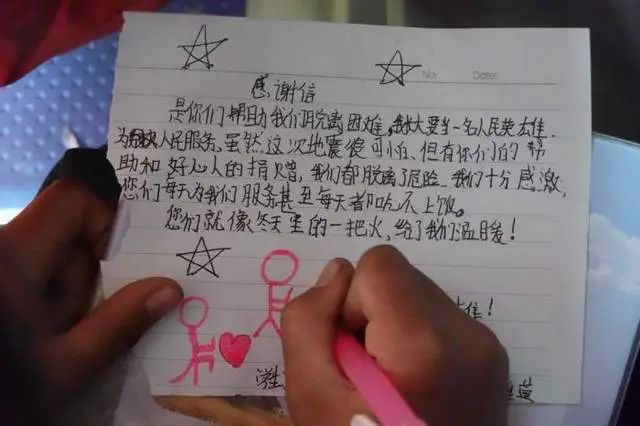 No:
Date:
感谢信
是你们帮助我们脱离困难,我长大要当一名人民英雄
为人民服务。虽然这次地震很可怕、但有你们的帮
助和好心人的捐赠,我们都脱离了危险、我们十分感激,
您们每天为我们服务甚至每天都吃不上饭。
您们就像冬天里的一把火,给了我们温暖!
!